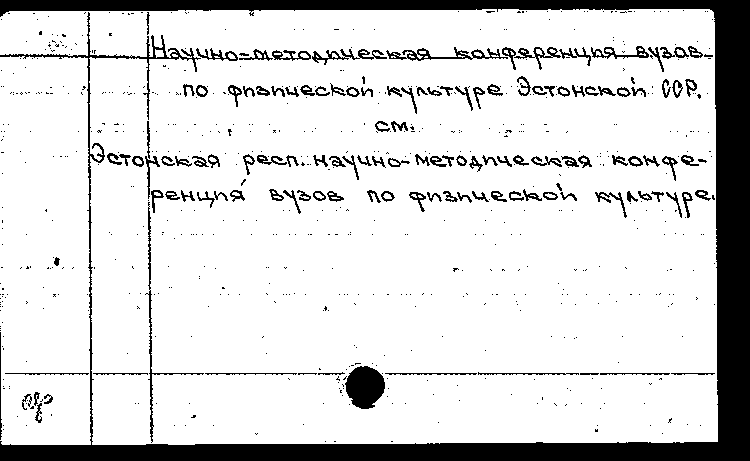 Научно-методическая конференция вузов
по физической культуре Эстонской ССР.
см.
Эстонская респ. научно-методическая конфе-
ренция вузов по физической культуре.